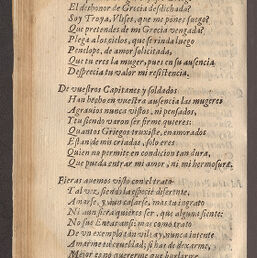 El deshonor de Grecia desdichada?
Soy Troya, Ulises, que me pones fuego?
Que pretendes de mi Grecia vengada?
Plega a los cielos, que se rinda luego
Penelope, de amor solicitada,
Que tu eres la muger, pues en su ausencia
Desprecia tu valor mi resistencia.
De vuestros Capitanes y soldados
Han hecho en vuestra ausencia las mugeres
Agravios nunca vistos, ni pensados,
Y tu siendo varon ser firme quieres:
Quantos Griegos truxiste, enamorados
Estan de mis criadas, solo eres
Quien no permite en condicion tan dura,
Que pueda entrar mi amor, ni mi hermosura.
Fieras avemos visto con el trato
Tal vez, siendo la especie diferente,
Amarse, y aun casarse, mas tu ingrato
Ni aun fiera quieres ser, que alguna siente:
No fue Eneas ansi; mas como trato
De un exemplo tan vil, ay, nunca intente
Amarine tu crueldad; si has de dexarme,
Mejor es no quererme que burlarme